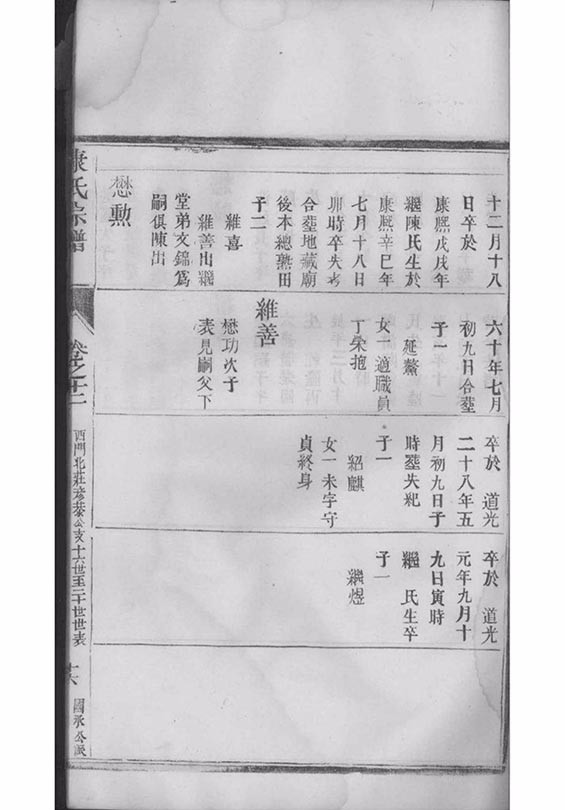 十二月十八
日卒於
康熙戊戌年
繼陳氏生於
康熙辛巳年
七月十八日
卯時卒失考
合塟地藏廟
後本總熟田
子二
維喜
維善出繼
堂弟文錦爲
嗣俱陳出
懋勲
六十年七月
初九日合塟
子一
延鰲
女一適職員
丁榮抱
維善
懋功次子
表見嗣父下
卒於 道光
二十八年五
月初九日子
時塟失紀
子一
紹麒
女一未字守
貞終身
卒於 道光
元年九月十
九日寅時
繼 氏生卒
子一
繼煜
康氏宗譜
卷之十二
西門北莊彦恭公支十六世至二十世世表
十六
國承公派